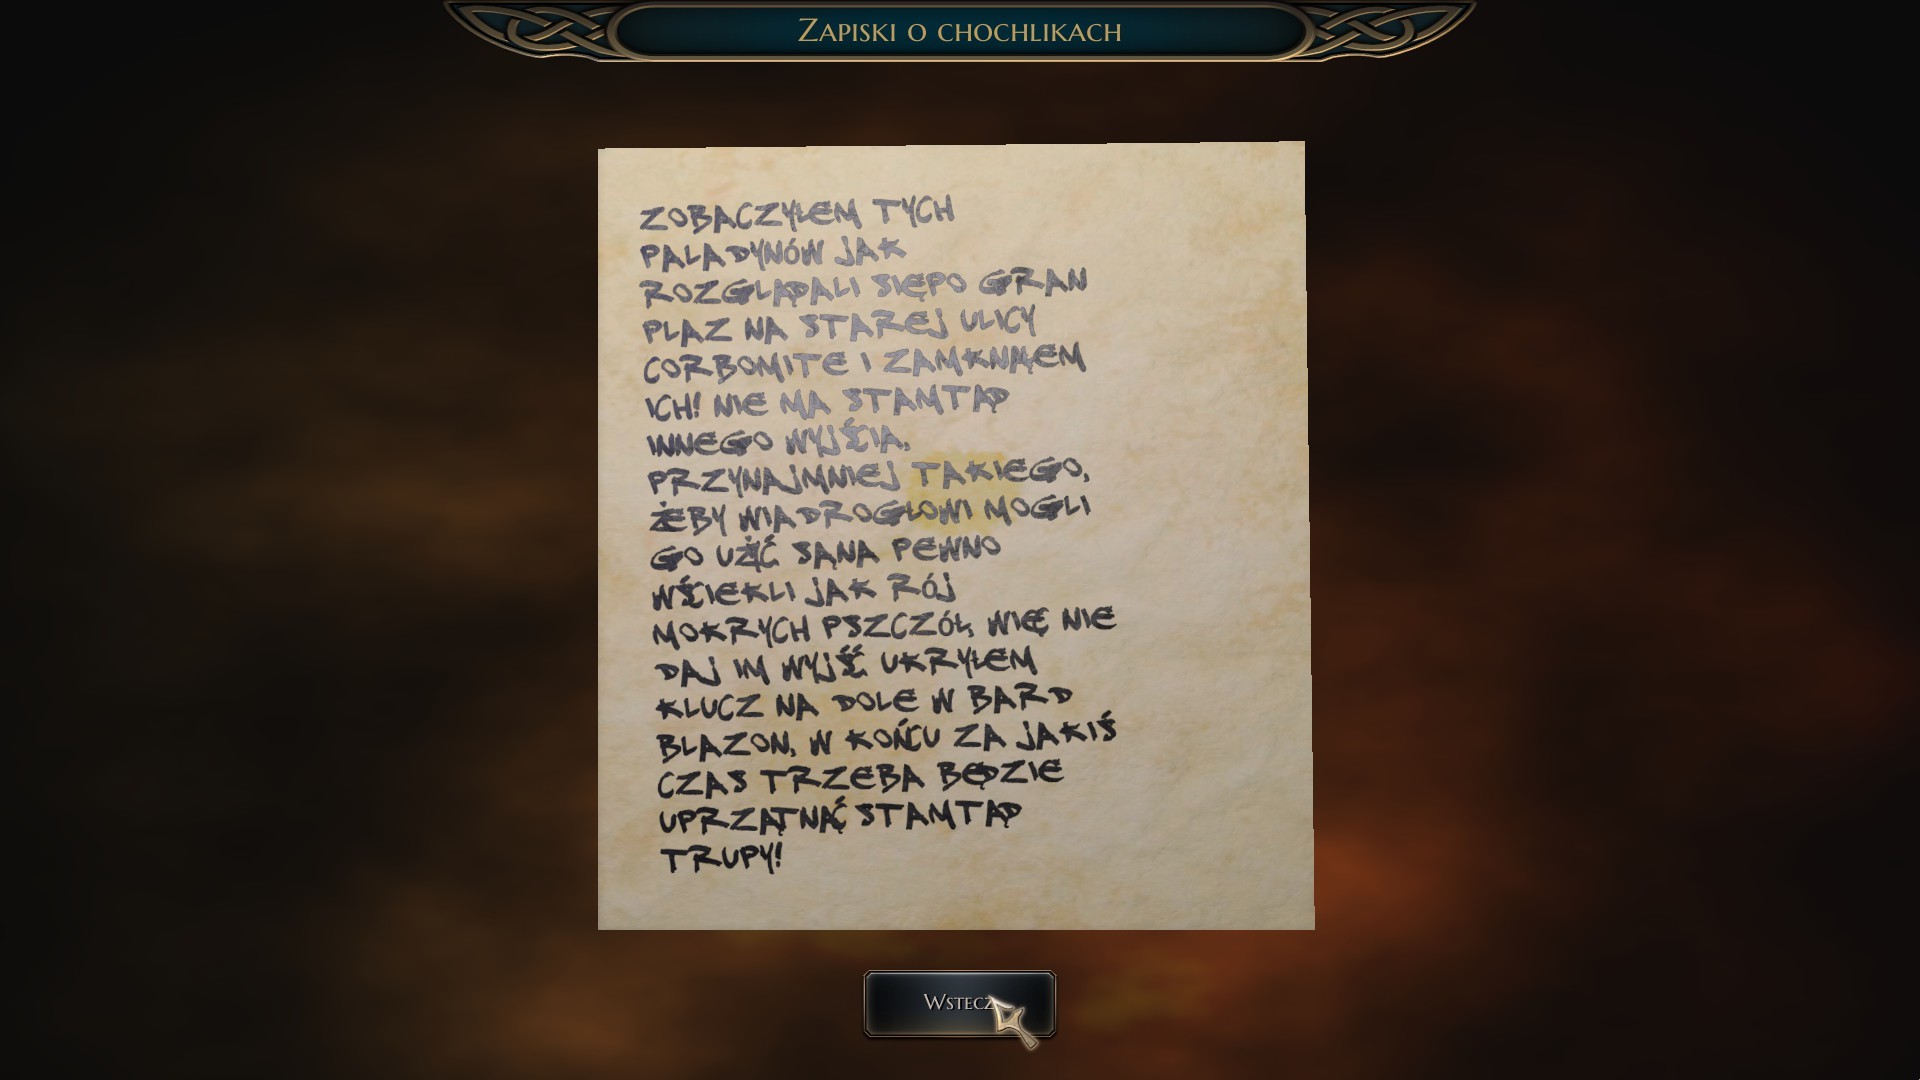 Zapiski o chochlikach
ZOBACZYŁEM TYCH
PALADYNÓW JAK
ROZGLĄDALI SIĘPO GRAN
PLAZ NA STAREJ ULICY
CORBOMITE I ZAMKNĄŁEM
ICH! NIE MA STAMTĄD
INNEGO WYJŚCIA,
PRZYNAJMNIEJ TAKIEGO,
ŻEBY WIADROGŁOWI MOGLI
GO UŻYĆ SĄNA PEWNO
WŚCIEKLI JAK RÓJ
MOKRYCH PSZCZÓŁ, WIĘC NIE
DAJ IM WYJŚĆ UKRYŁEM
KLUCZ NA DOLE W BARD
BLAZON, W KOŃCU ZA JAKIŚ
CZAS TRZEBA BĘDZIE
UPRZĄTNĄĆ STAMTĄD
TRUPY!
Wstecz